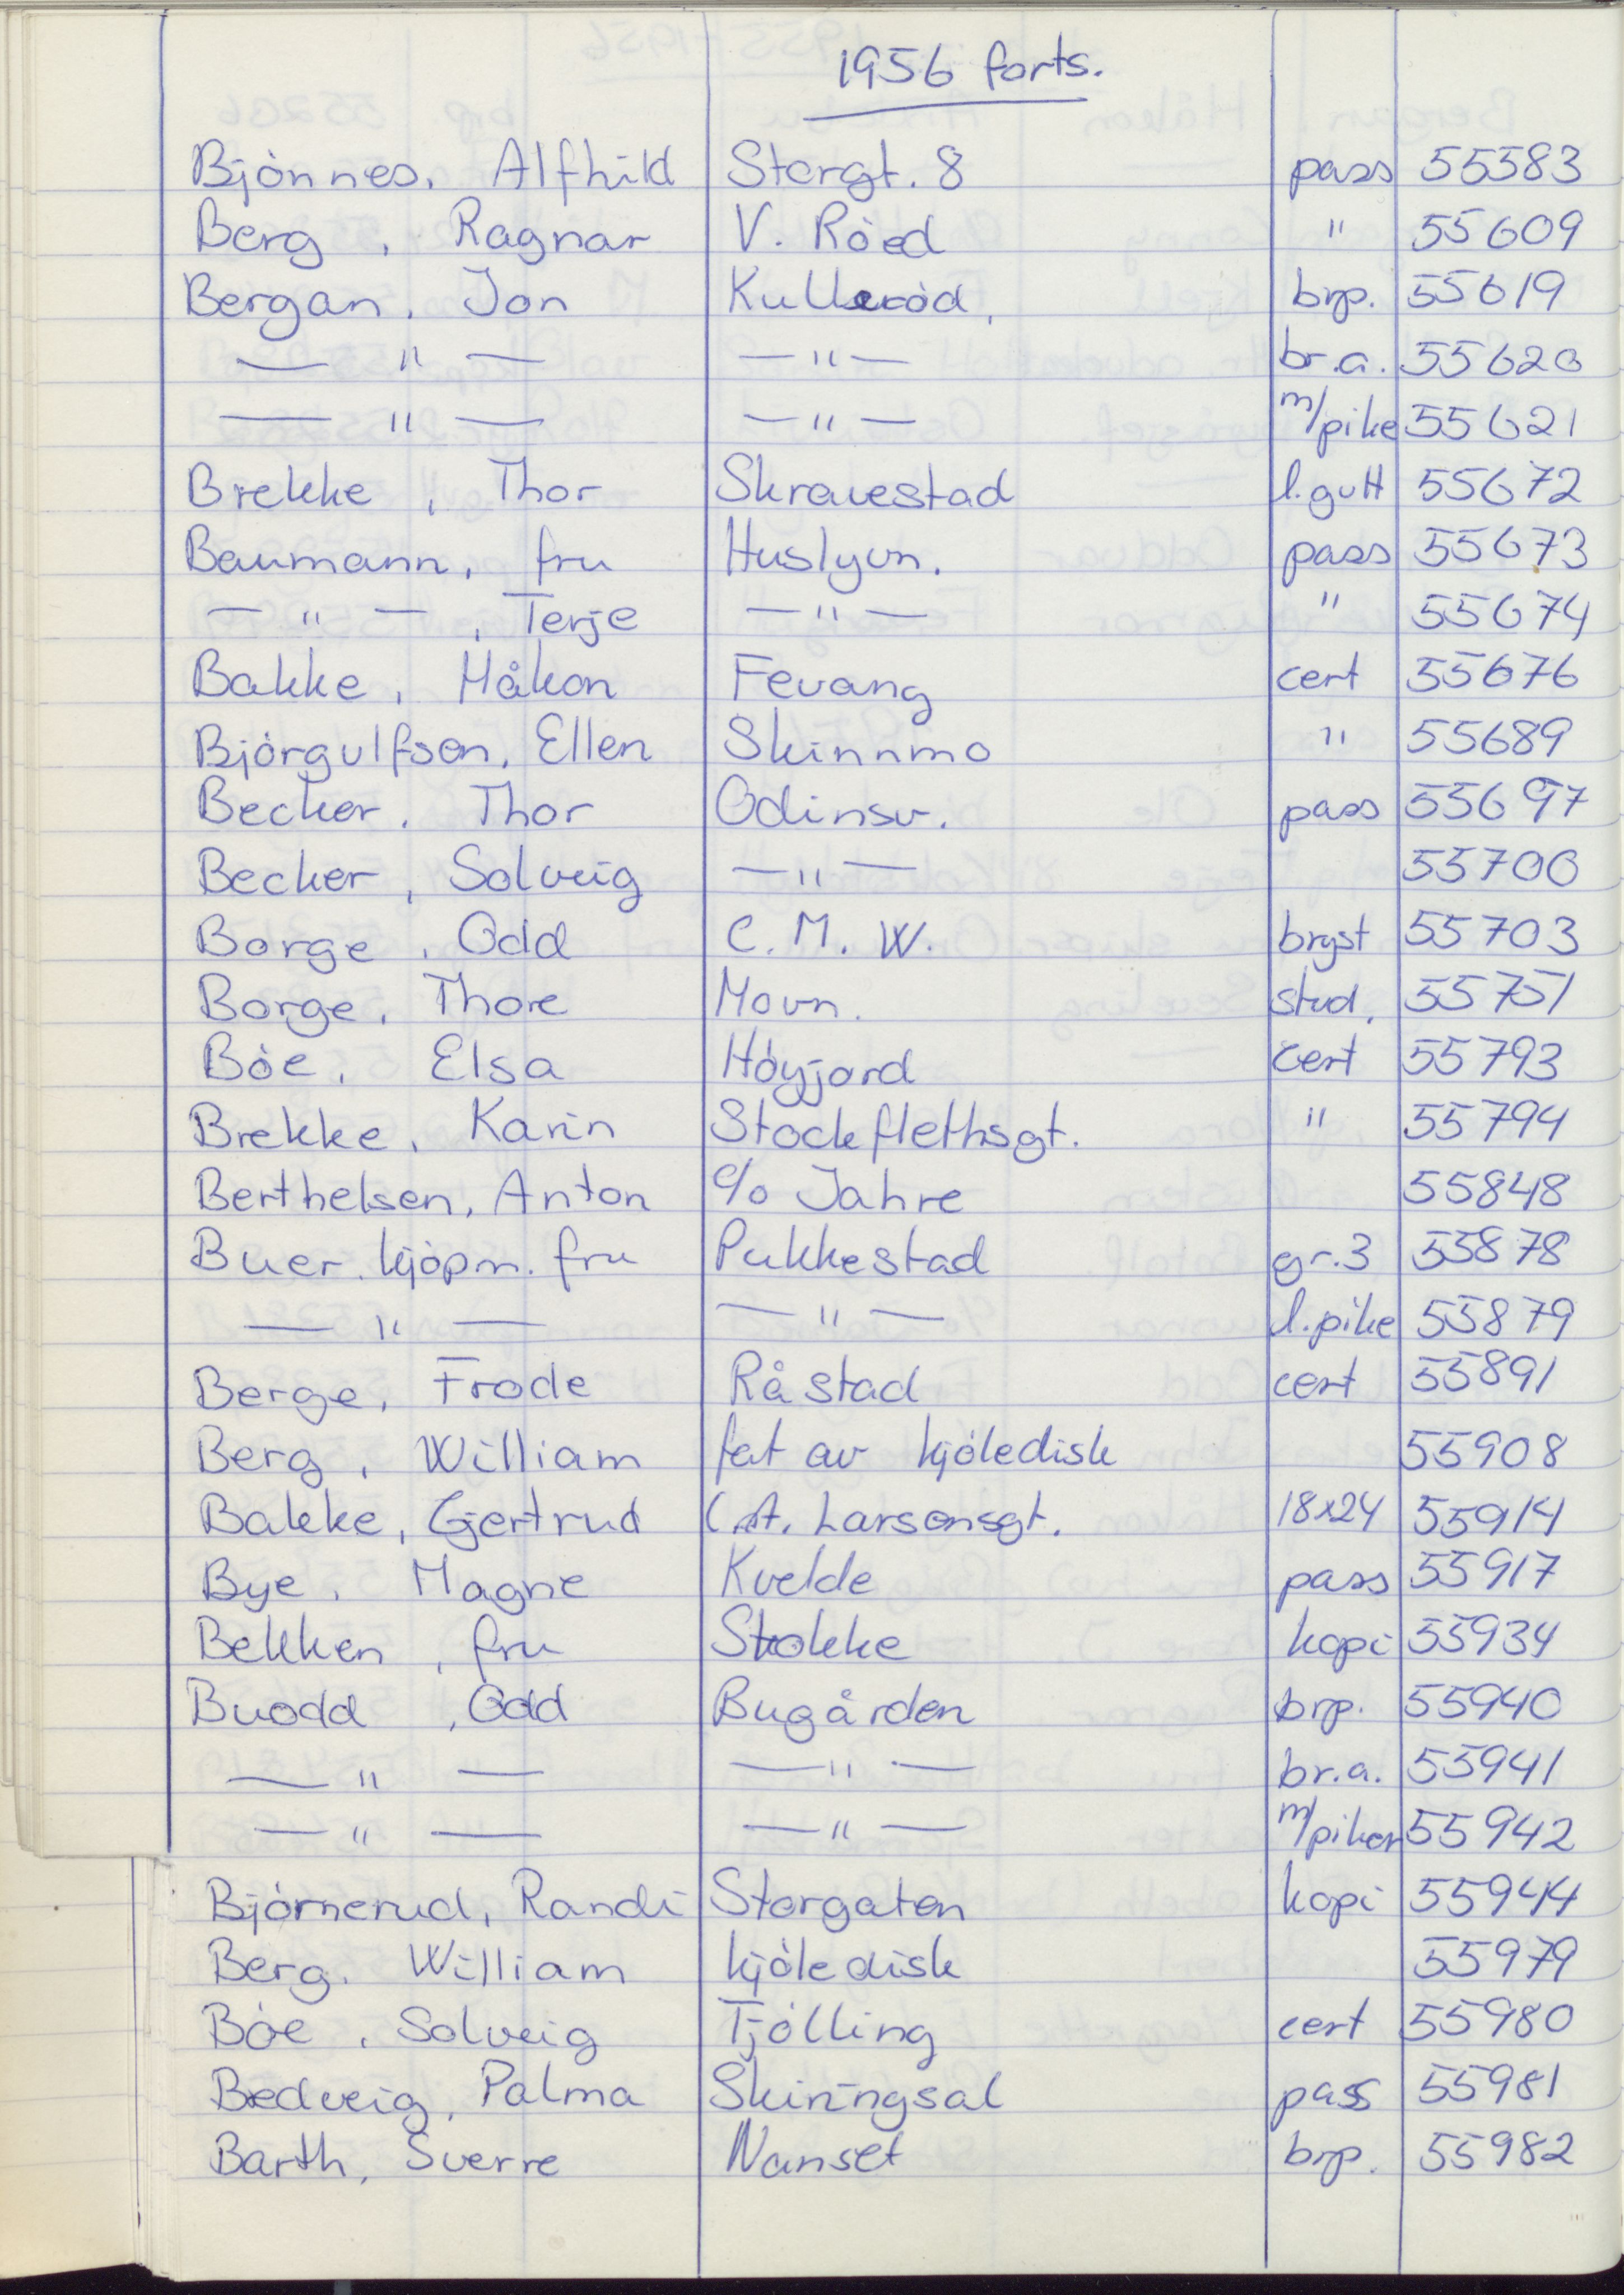 1956 forts.
Bjònnes, Alfhild Storgt. 8 pass 55583
Berg, Ragnar V. Ròed " 55609
Bergan, Jon Kulleròd, brp. 55619
— " — — " — br.a. 55620
— " — — " — m/pike 55621
Brekke, Thor Skravestad l.gutt 55672
Baumann, fru Huslyvn. pass 55673
— " —, Terje — " — " 55674
Bakke, Håkon Fevang cert 55676
Bjòrgulfson, Ellen Skinnmo " 55689
Becker, Thor Odinsv. pass 55697
Becker, Solveig — " — 55700
Borge, Odd C. M. W. bryst 55703
Borge, Thore Movn. stud. 55751
Bòe, Elsa Hòyjord cert 55793
Brekke, Karin Stockflethsgt. " 55794
Berthelsen, Anton c/o Jahre 55848
Buer, kjòpm. fru Pukkestad gr.3 55878
— " — — " — l.pike 55879
Berge, Frode Råstad cert 55891
Berg, William fat av kjòledisk 55908
Bakke, Gjertrud C.A. Larsensgt. 18x24 55914
Bye, Magne Kvelde pass 55917
Bekken, fru Stokke kopi 55934
Buodd, Odd Bugården brp. 55940
— " — — " — br.a. 55941
— " — — " — m/piker 55942
Bjòrnerud, Randi Storgaten kopi 55944
Berg, William kjòledisk 55979
Bòe, Solveig Tjòlling cert 55980
Bredveig, Palma Skiringsal pass 55981
Barth, Sverre Nanset brp. 55982